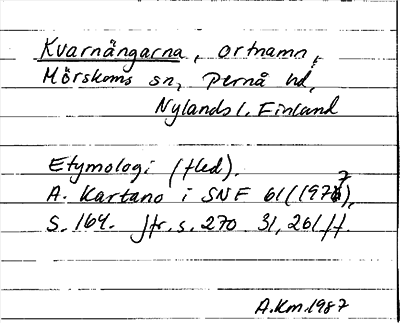 Kvarnängarna, ortnamn,
Mörskoms sn, Pernå hd,
Nylands l. Finland
Etymologi (fled).
A. Kartano i SNF 61 (1977),
S. 164. Jfr. s. 270. 31, 261 ff.
A.Km.1987